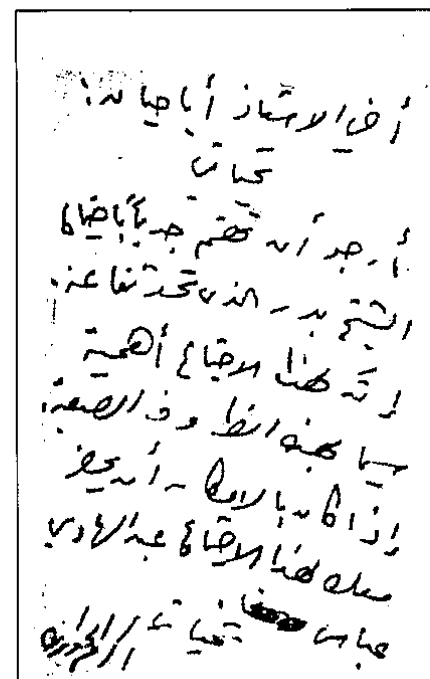 أخي الاستاذ أبا حيان:
تحياتي
أرجو أن تهتم جدياً باجتماع
الشيخ بدر الذي تحدثنا عنه.
إنّ لهذا الاجتماع أهمية
سيما بهذه الظروف الصعبة.
إذا كان بالامكان أن يحضر
معك هذا الاجتماع عبد الهادي
عباس تحياتي